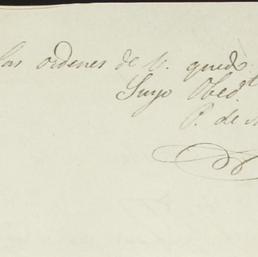 las ordenes de V. quedo
Suyo Obed.te
P. de